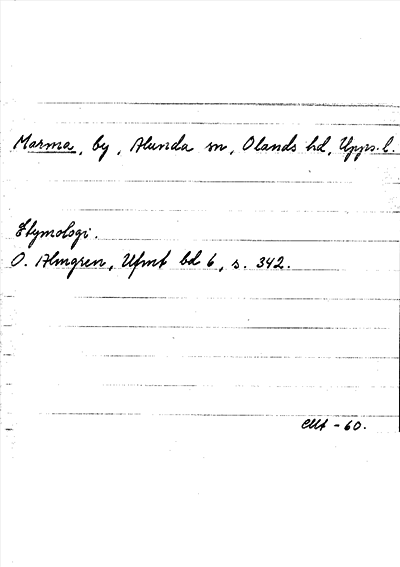 Marma, by, Alunda sn, Olands hd, Upps. l.
Etymologi.
O. Almgren, Ufmt bd 6, s. 342.
- 60.